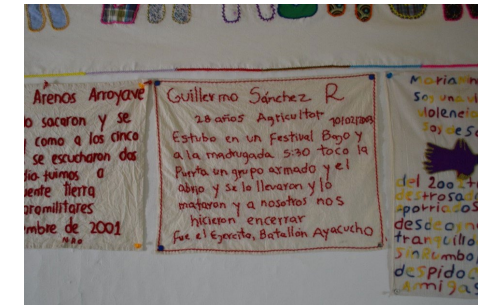 Arenos Arroyave
o sacaron y se
como a los cinco
se escucharon dos
dia fuimos a
uente tierra
aramilitares
mbre de 2001
Guillermo Sánchez R
28 años Agricultor 10/02/2003
Estubo en un Festival Bajo y
a la madrugada 5:30 toco la
Punta un grupo armado y el
abrio y se lo llevaron y lo
mataron y a nosotros nos
hicieron encerrar
Fue el Ejercito, Batallón Ayacucho
Mariann
Soy una vi
violencia
Soy de So
del 2002 t
destrosad
aporriados
desde
tranquilo
sin rumbo
despidoc
amigas